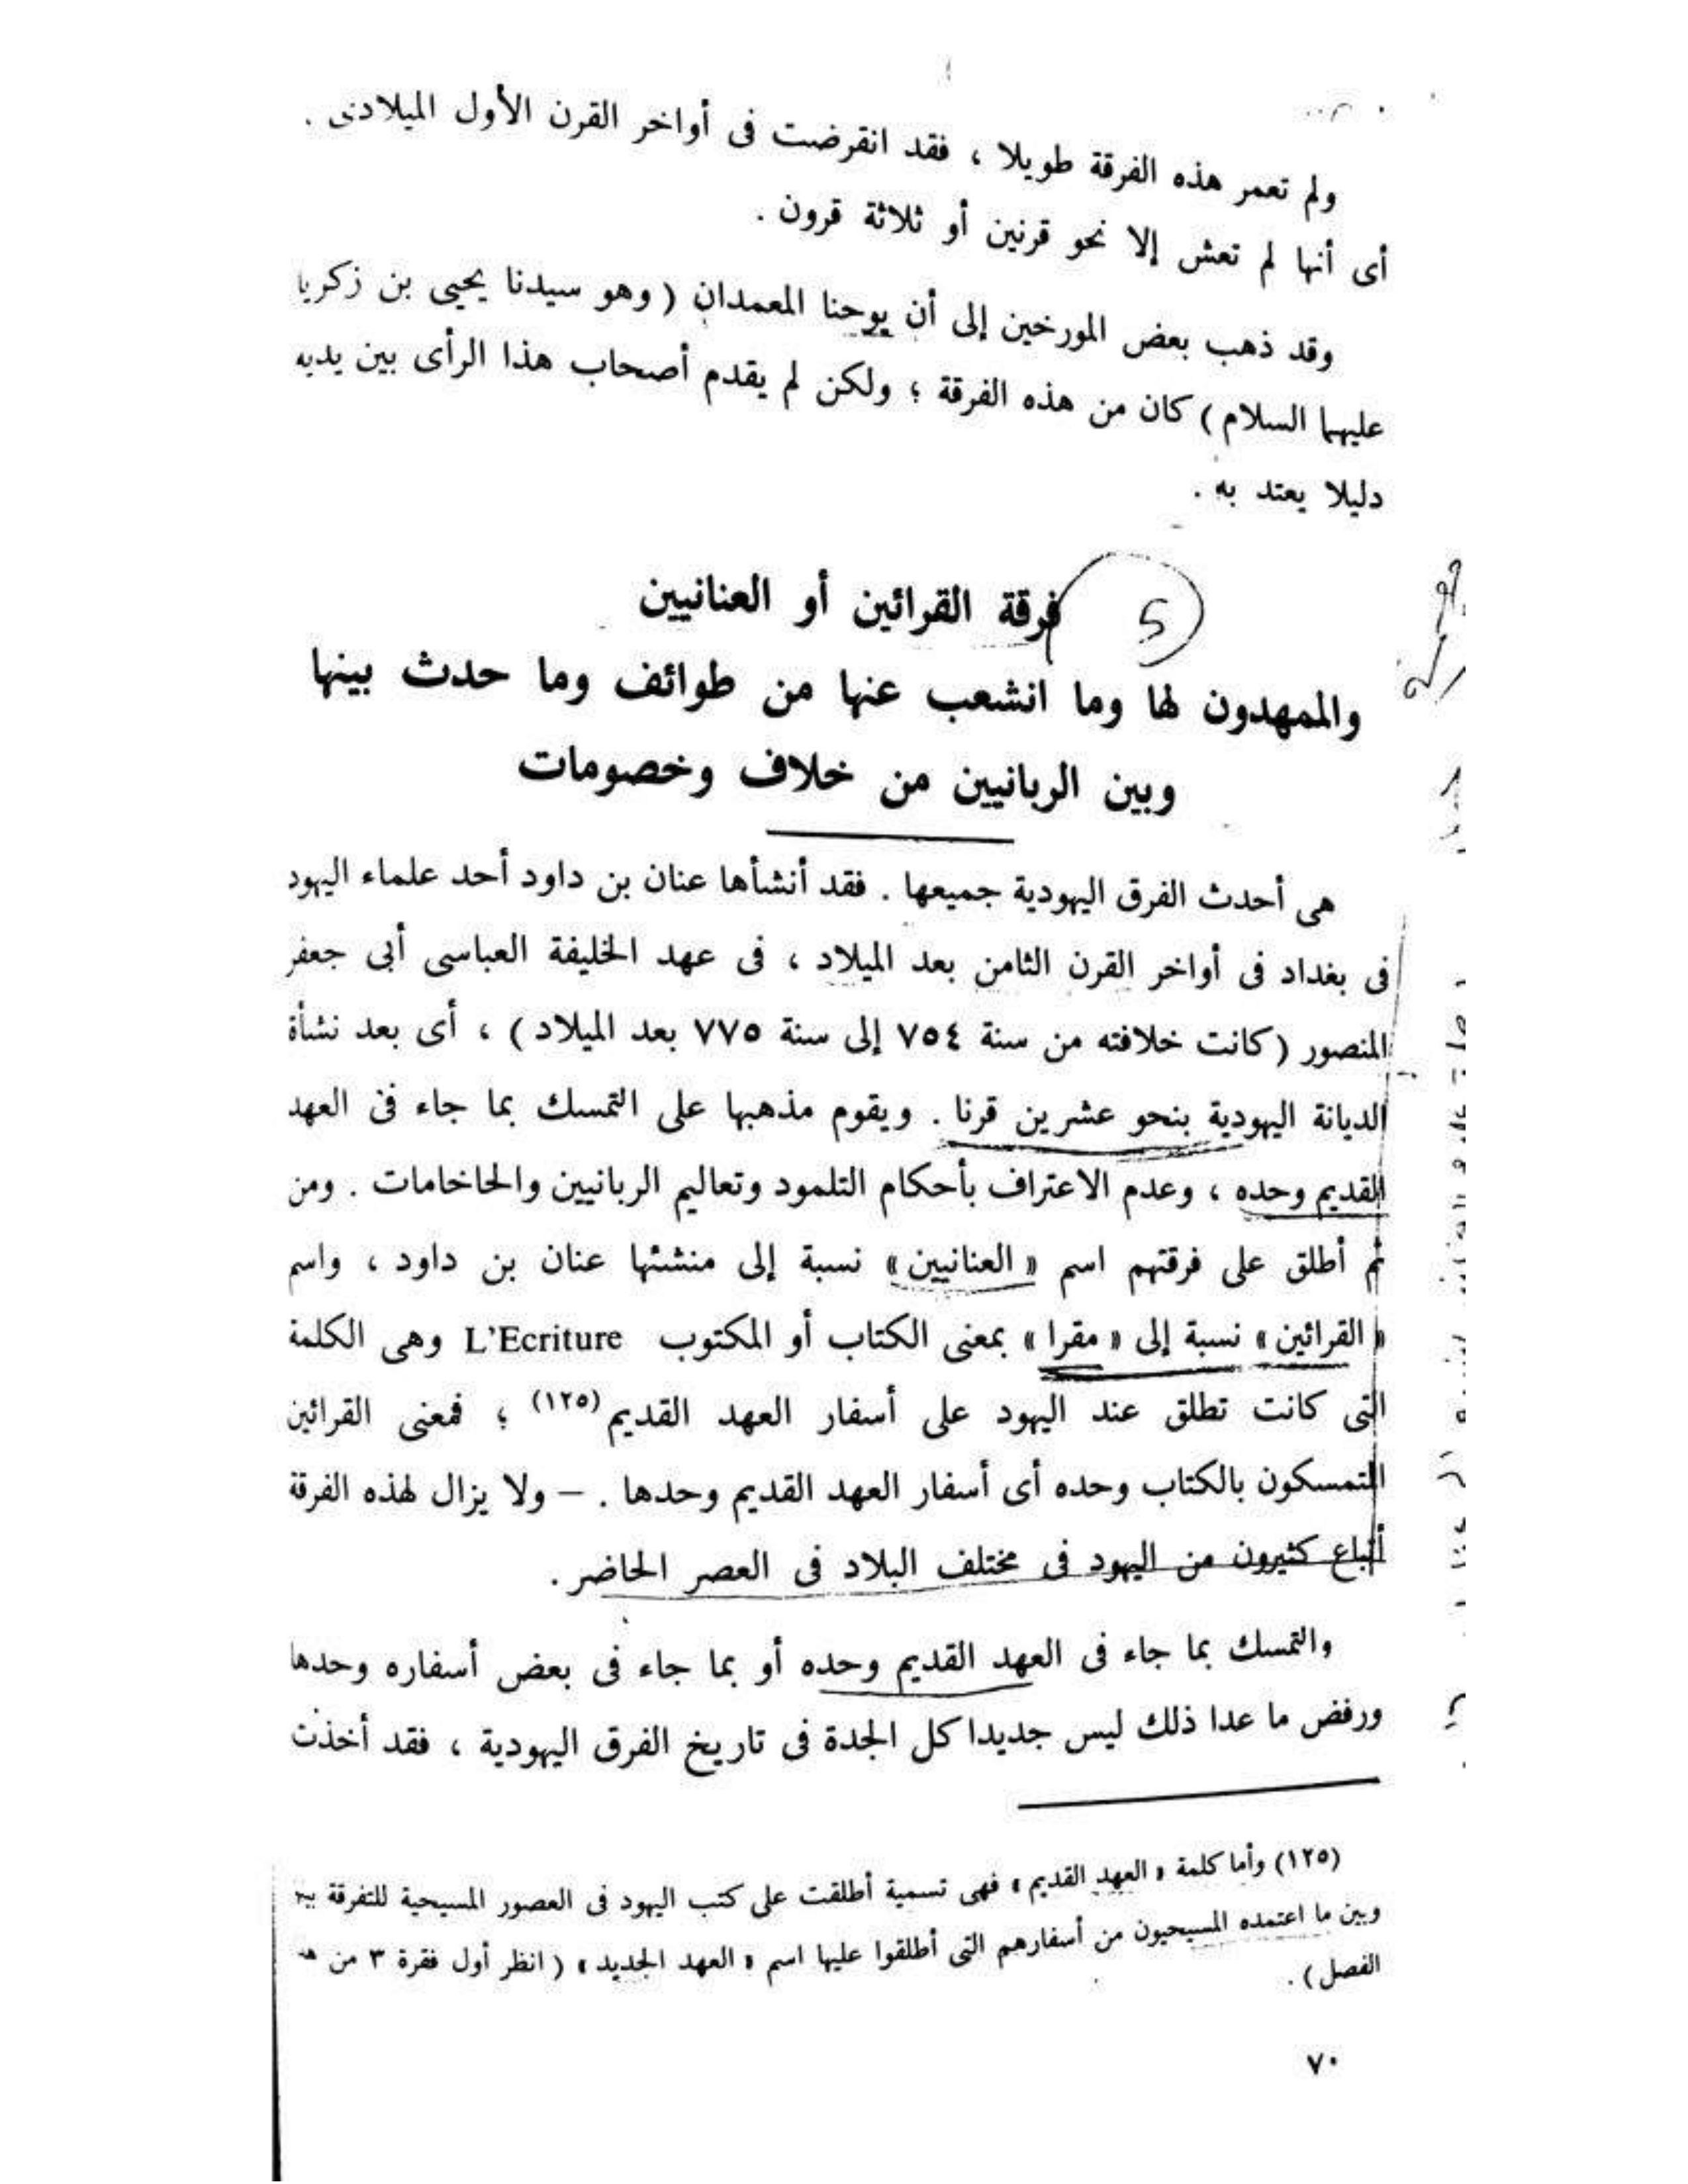 ولم تعمر هذه الفرقة طويلا ، فقد انقرضت فى أواخر القرن الأول الميلادى .
أى أنها لم تعش إلا نحو قرنين أو ثلاثة قرون .
وقد ذهب بعض المورخين إلى أن يوحنا المعمدان ( وهو سيدنا يحيى بن زكريا
عليهما السلام ) كان من هذه الفرقة ؛ ولكن لم يقدم أصحاب هذا الرأى بين يديه
دليلا يعتد به .
5 فرقة القرائين أو العنانيين
والممهدون لها وما انشعب عنها من طوائف وما حدث بينها
وبين الربانيين من خلاف وخصومات
هى أحدث الفرق اليهودية جميعها . فقد أنشأها عنان بن داود أحد علماء اليهود
فى بغداد فى أواخر القرن الثامن بعد الميلاد ، فى عهد الخليفة العباسى أبى جعفر
المنصور ( كانت خلافته من سنة ٧٥٤ إلى سنة ٧٧٥ بعد الميلاد ) ، أى بعد نشأة
الديانة اليهودية بنحو عشرين قرنا . ويقوم مذهبها على التمسك بما جاء فى العهد
القديم وحده ، وعدم الاعتراف بأحكام التلمود وتعاليم الربانيين والحاخامات . ومن
ثم أطلق على فرقتهم اسم « العنانيين » نسبة إلى منشئها عنان بن داود ، واسم
« القرائين » نسبة إلى « مقرا » بمعنى الكتاب أو المكتوب L'Ecriture وهى الكلمة
التى كانت تطلق عند اليهود على أسفار العهد القديم (١٢٥) ؛ فمعنى القرائين
المتمسكون بالكتاب وحده أى أسفار العهد القديم وحدها . – ولا يزال لهذه الفرقة
أتباع كثيرون من اليهود فى مختلف البلاد فى العصر الحاضر .
والتمسك بما جاء فى العهد القديم وحده أو بما جاء فى بعض أسفاره وحدها
ورفض ما عدا ذلك ليس جديدا كل الجدة فى تاريخ الفرق اليهودية ، فقد أخذت
(١٢٥) وأما كلمة « العهد القديم » فهى تسمية أطلقت على كتب اليهود فى العصور المسيحية للتفرقة
وبين ما اعتمده المسيحيون من أسفارهم التى أطلقوا عليها اسم « العهد الجديد » ( انظر أول فقرة ٣ من
الفصل ) .
٧٠